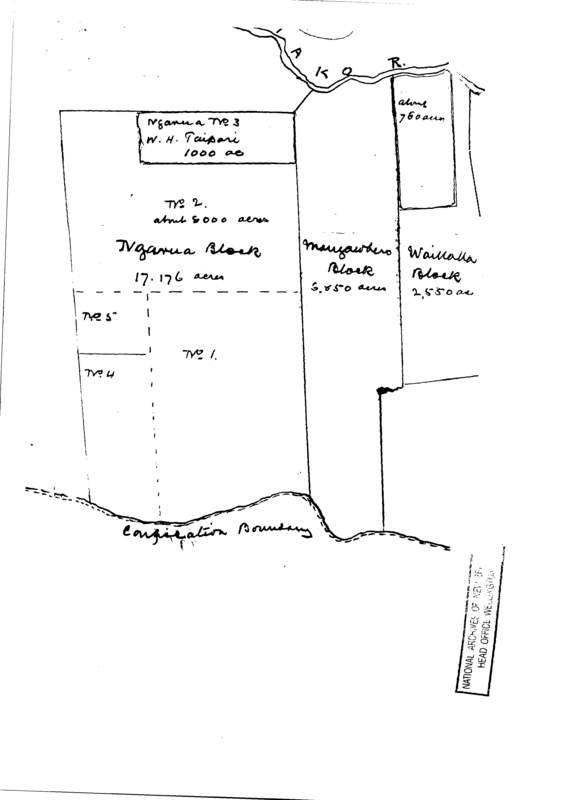 A K O R.
Ngarua No 3
W. H. Taipari
1000 ac
about
760 acres
No 2.
about 8000 acres
Ngarua Block
17.176 acres
Mangawhero
Block
Waillalla
Block
2,550 ac
No 5
No 4
No 1.
Confiscation Boundary
NATIONAL ARCHIVES OF NEW
HEAD OFFICE WELLINGTON